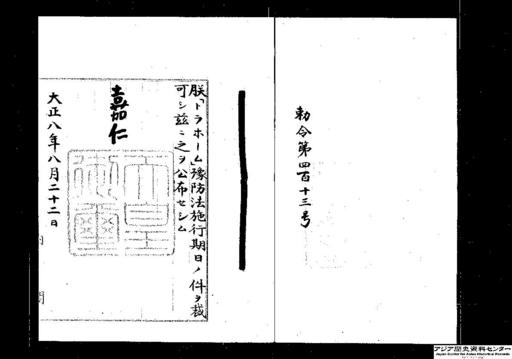 勅令第四百十三号
朕「トラホーム」豫防法施行期日ノ件ヲ裁
可シ茲ニ之ヲ公布セシム
嘉仁
天皇
御璽
大正八年八月二十二日
アジア歴史資料センター
Japan Center for Asian Historical Records